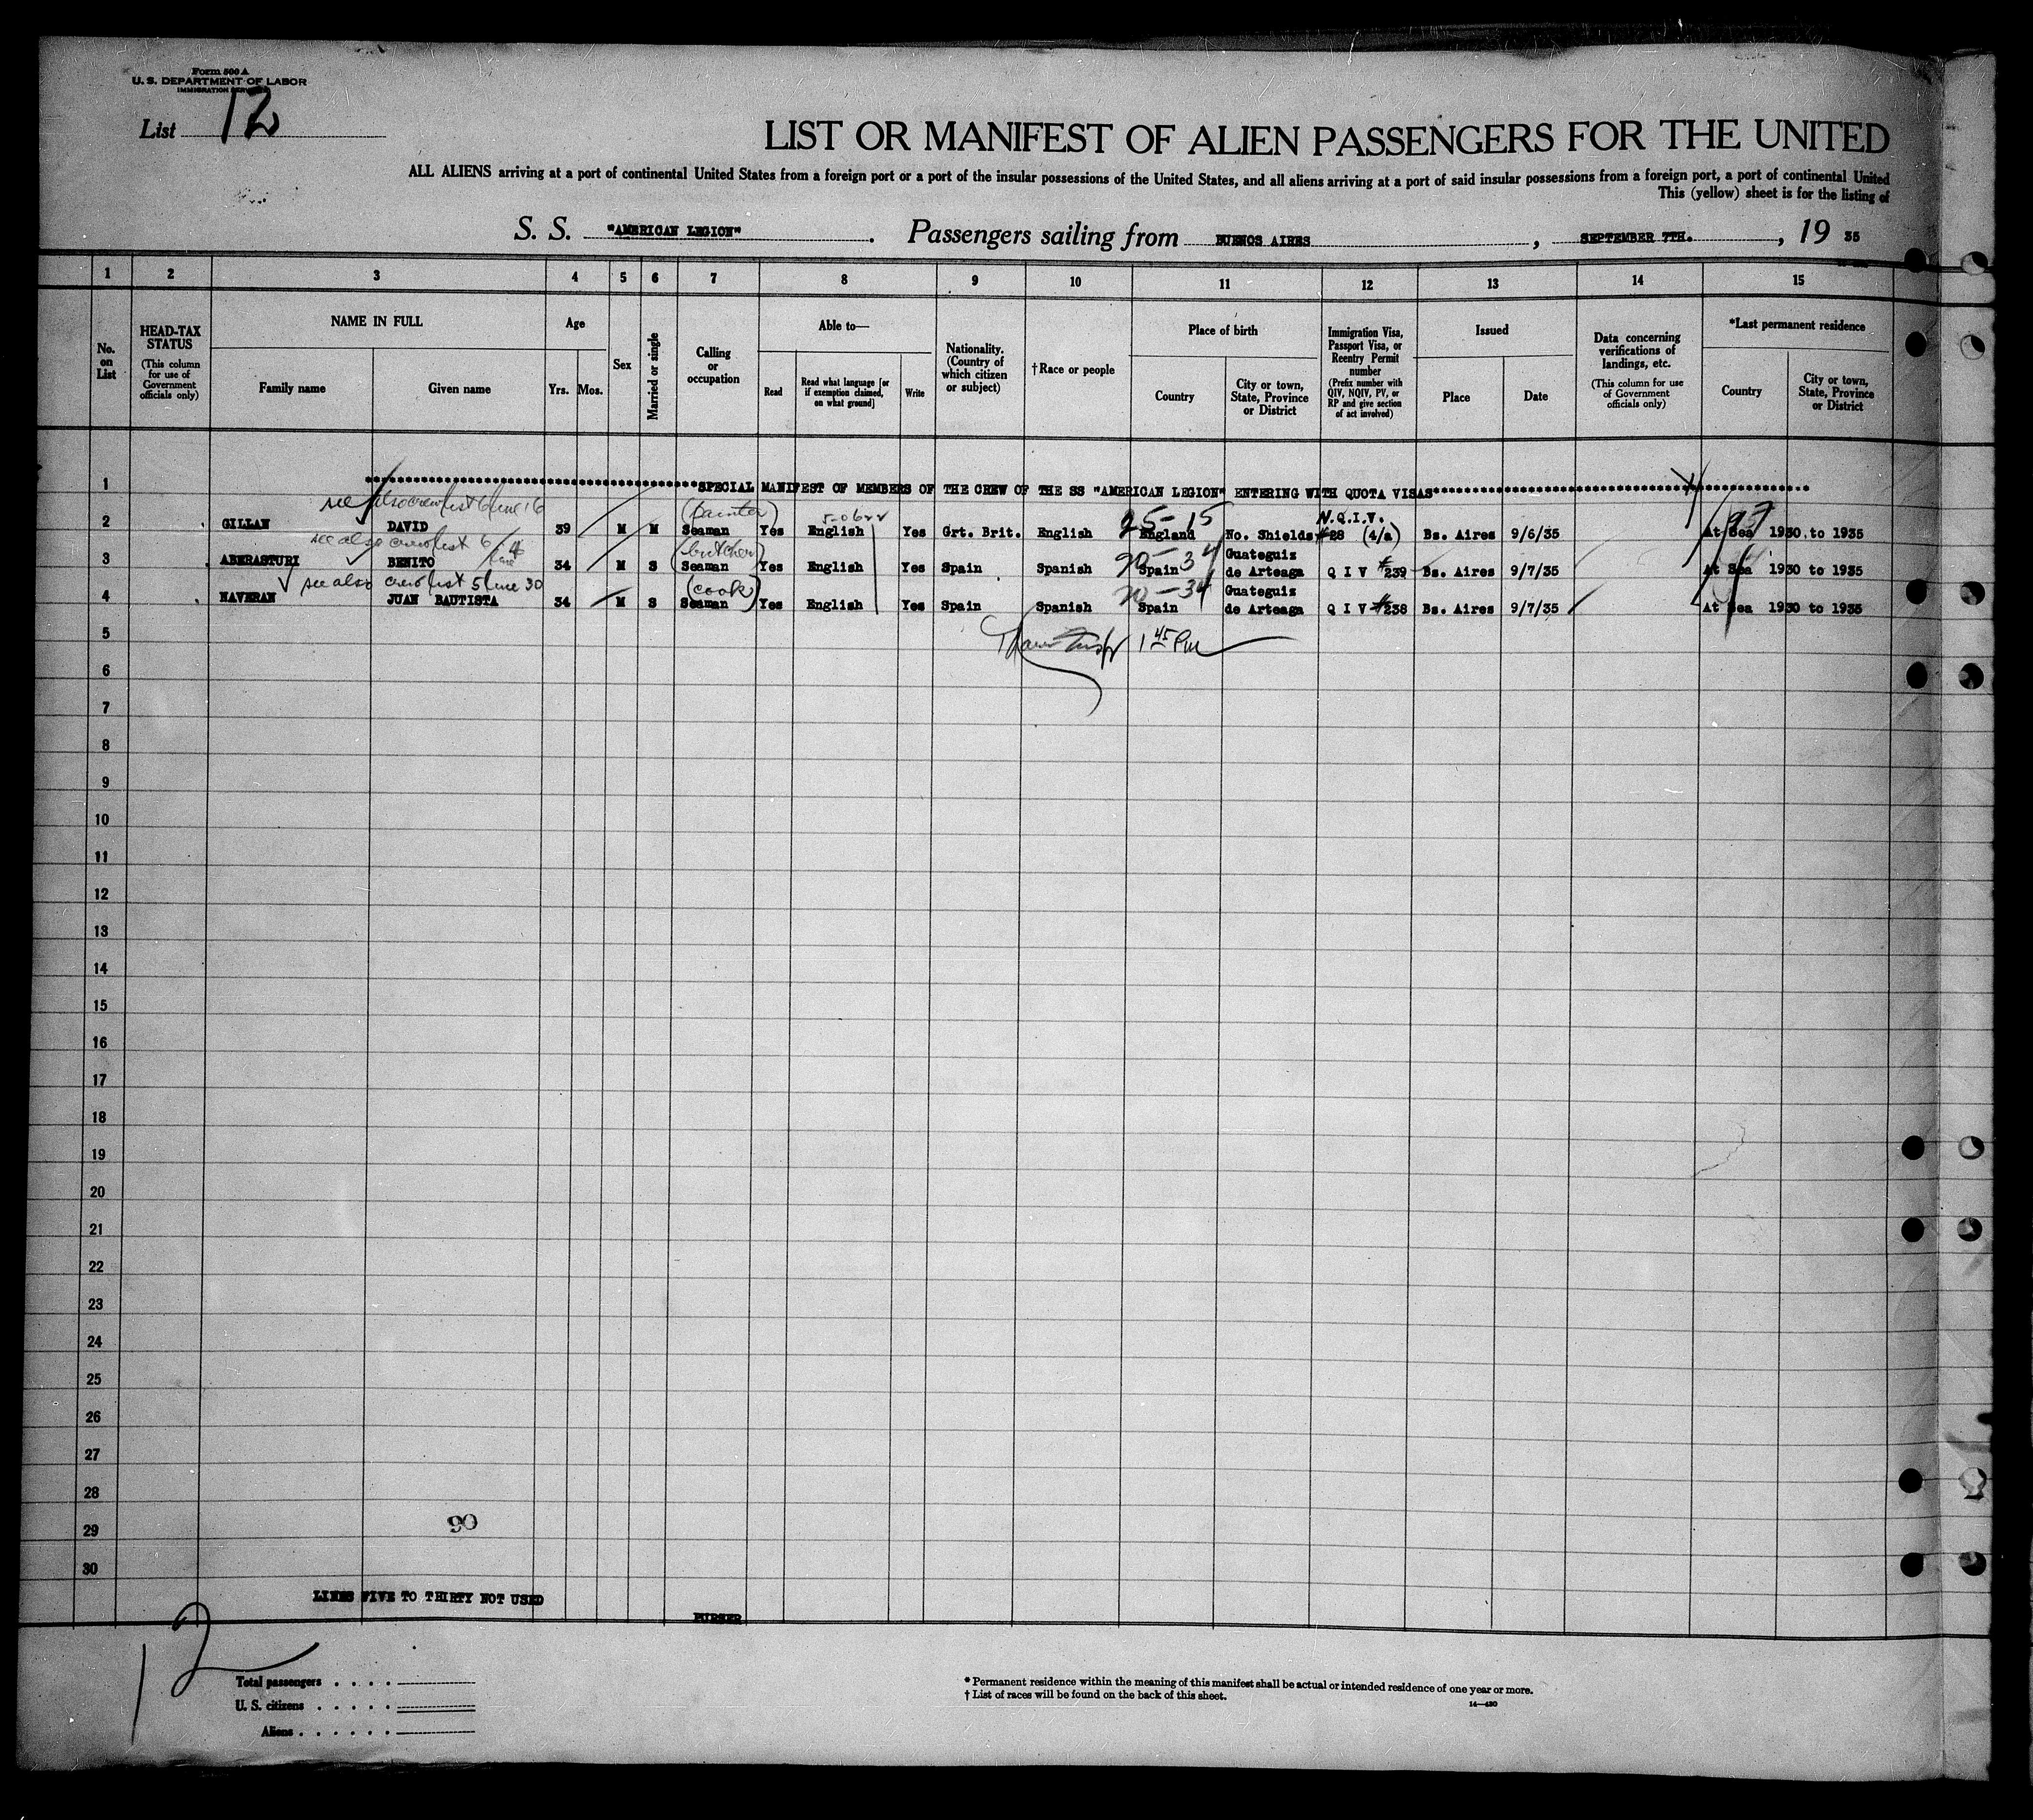 Form 500 A
U. S. DEPARTMENT OF LABOR
IMMIGRATION SERVICE
List 12
LIST OR MANIFEST OF ALIEN PASSENGERS FOR THE UNITED
ALL ALIENS arriving at a port of continental United States from a foreign port or a port of the insular possessions of the United States, and all aliens arriving at a port of said insular possessions from a foreign port, a port of continental United
This (yellow) sheet is for the listing of
S. S. "AMERICAN LEGION". Passengers sailing from BUENOS AIRES, SEPTEMBER 7TH., 19 35
1 2 3 4 5 6 7 8 9 10 11 12 13 14 15
No. on List
HEAD-TAX STATUS
(This column for use of Government officials only)
NAME IN FULL
Family name
Given name
Age
Yrs. Mos.
Sex
Married or single
Calling or occupation
Able to—
Read
Read what language [or if exemption claimed, on what ground]
Write
Nationality. (Country of which citizen or subject)
†Race or people
Place of birth
Country
City or town, State, Province or District
Immigration Visa, Passport Visa, or Reentry Permit number
(Prefix number with QIV, NQIV, PV, or RP and give section of act involved)
Issued
Place
Date
Data concerning verifications of landings, etc.
(This column for use of Government officials only)
*Last permanent residence
Country
City or town, State, Province or District
1 SPECIAL MANIFEST OF MEMBERS OF THE CREW OF THE SS "AMERICAN LEGION" ENTERING WITH QUOTA VISAS
see also crew list 6 line 16
(painter) 25-15 N.Q.I.V.
2 GILLAN DAVID 39 M M Seaman Yes English Yes Grt. Brit. English England No. Shields #28 (4/a) Bs. Aires 9/6/35 At Sea 1930 to 1935
see also crew list 6 line 4
(butcher) 90-34 Guateguiz
3 ABERASTURI BENITO 34 M S Seaman Yes English Yes Spain Spanish Spain de Arteaga Q I V #239 Bs. Aires 9/7/35 At Sea 1930 to 1935
see also crew list 5 line 30
(cook) 90-34 Guateguiz
4 NAVERAN JUAN BAUTISTA 34 M S Seaman Yes English Yes Spain Spanish Spain de Arteaga Q I V #238 Bs. Aires 9/7/35 At Sea 1930 to 1935
5 1 45 Pm
6
7
8
9
10
11
12
13
14
15
16
17
18
19
20
21
22
23
24
25
26
27
28
29 90
30
LINES FIVE TO THIRTY NOT USED
PURSER
12
Total passengers
U. S. citizens
Aliens
* Permanent residence within the meaning of this manifest shall be actual or intended residence of one year or more.
† List of races will be found on the back of this sheet.
14—430